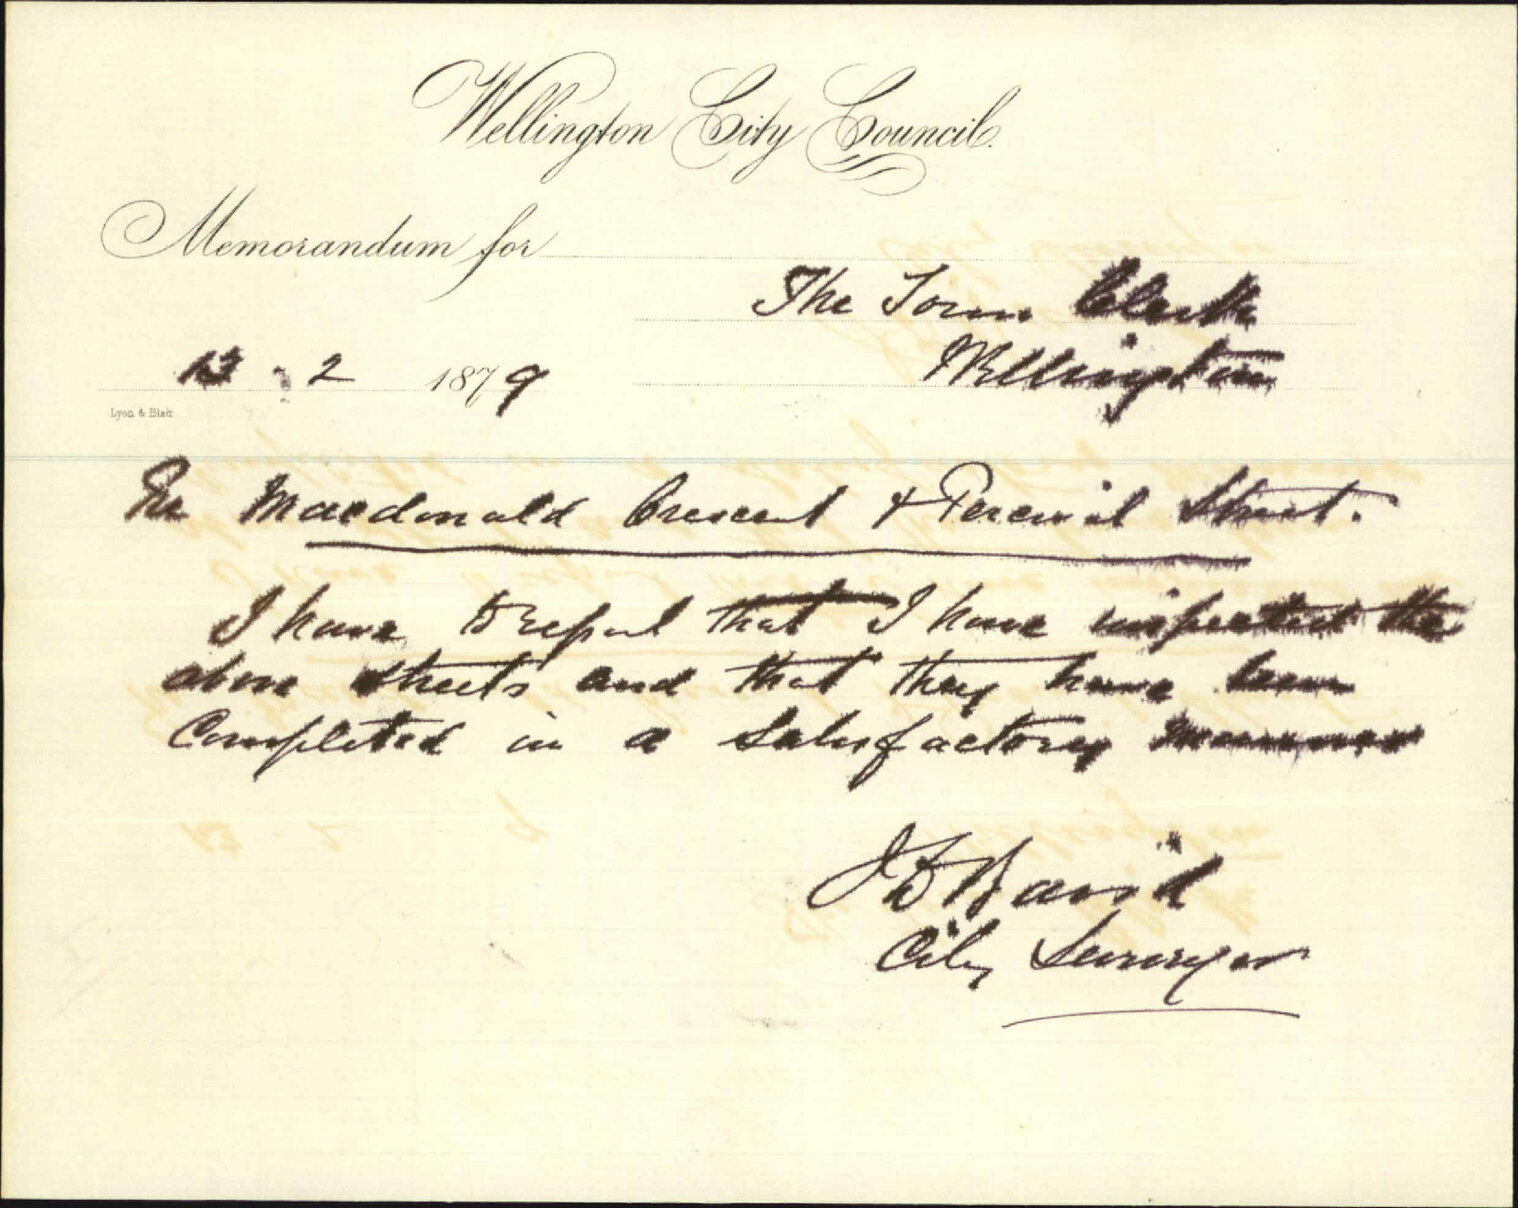 Wellington City Council.
Memorandum for
The Town Clerk
Wellington
13 - 2 1879
Lyon & Blair
Re Macdonald Crescent & Percival Street.
I have to report that I have inspected the
above streets and that they have been
Completed in a Satisfactory manner
J D Baird
City Surveyor